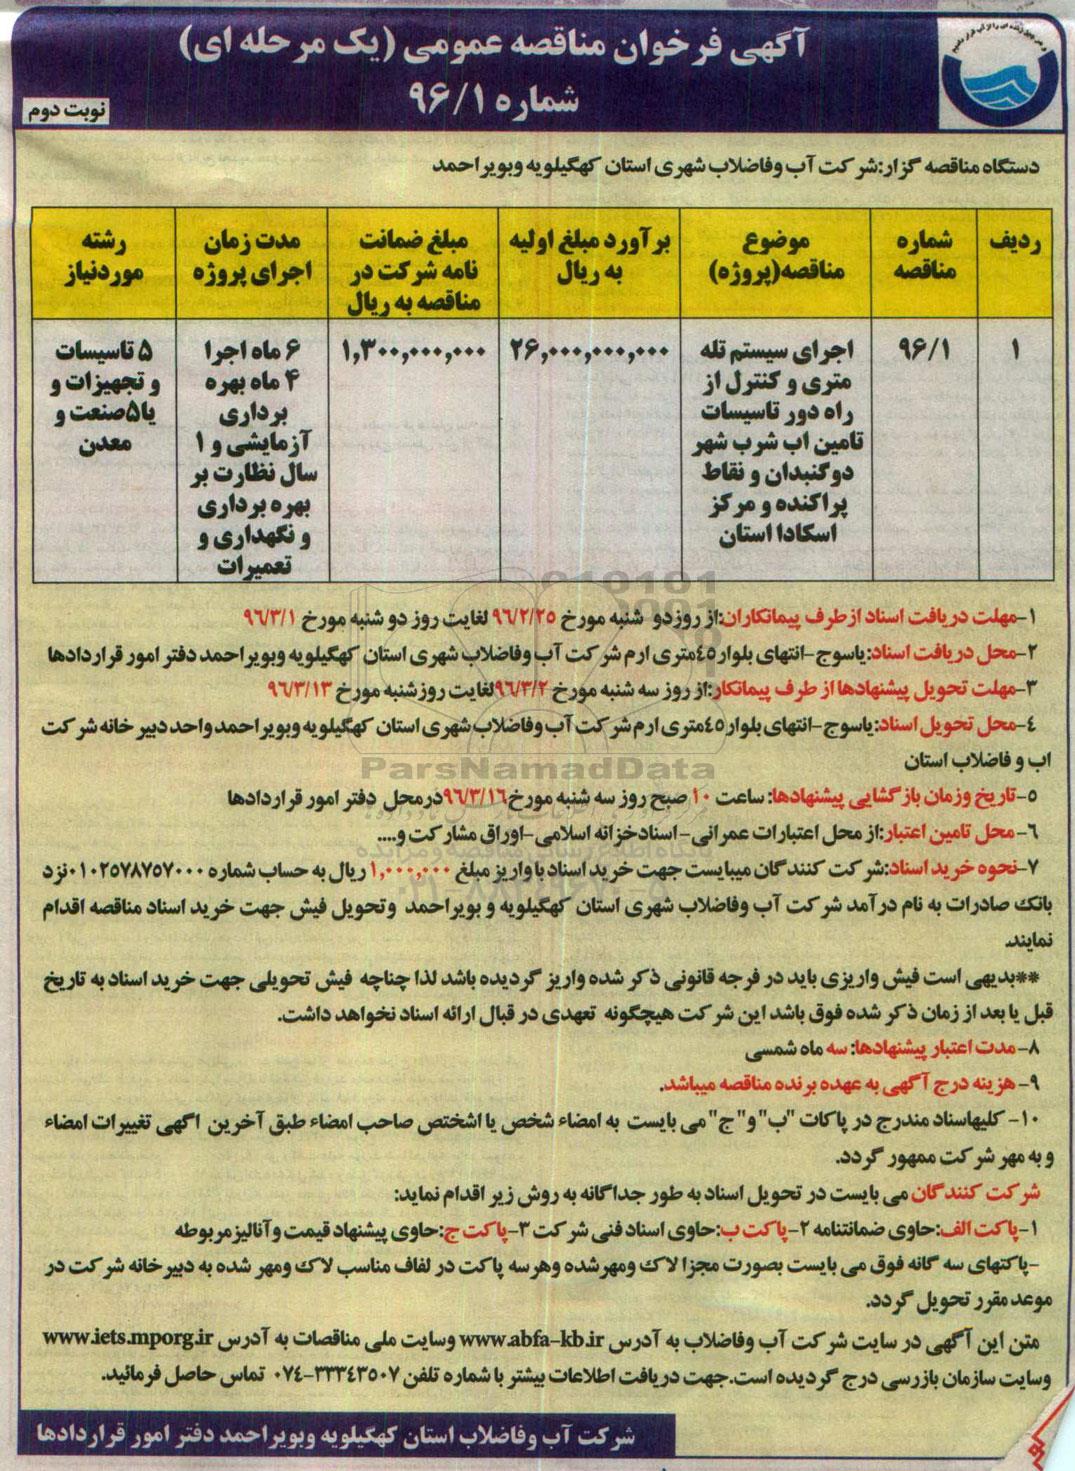 آگهی فرخوان مناقصه عمومی (یک مرحله ای)
شماره ۹۶/۱
نوبت دوم
دستگاه مناقصه گزار:شرکت آب وفاضلاب شهری استان کهگیلویه وبویراحمد
ردیف
شماره
مناقصه
موضوع
مناقصه(پروژه)
برآورد مبلغ اولیه
به ریال
مبلغ ضمانت
نامه شرکت در
مناقصه به ریال
مدت زمان
اجرای پروژه
رشته
موردنیاز
۱
۹۶/۱
اجرای سیستم تله
متری و کنترل از
راه دور تاسیسات
تامین اب شرب شهر
دوگنبدان و نقاط
پراکنده و مرکز
اسکادا استان
۲۶,۰۰۰,۰۰۰,۰۰۰
۱,۳۰۰,۰۰۰,۰۰۰
۶ ماه اجرا
۴ ماه بهره
برداری
آزمایشی و ۱
سال نظارت بر
بهره برداری
و نگهداری و
تعمیرات
۵ تاسیسات
و تجهیزات و
یا۵صنعت و
معدن
۱-مهلت دریافت اسناد ازطرف پیمانکاران:از روزدو شنبه مورخ ۹۶/۲/۲۵ لغایت روز دو شنبه مورخ ۹۶/۳/۱
۲-محل دریافت اسناد:یاسوج-انتهای بلوار۴۵متری ارم شرکت آب وفاضلاب شهری استان کهگیلویه وبویراحمد دفتر امور قراردادها
۳-مهلت تحویل پیشنهادها از طرف پیمانکار:از روز سه شنبه مورخ ۹۶/۳/۲لغایت روزشنبه مورخ ۹۶/۳/۱۳
۴-محل تحویل اسناد:یاسوج-انتهای بلوار۴۵متری ارم شرکت آب وفاضلاب شهری استان کهگیلویه وبویراحمد واحد دبیر خانه شرکت
اب و فاضلاب استان
ParsNamadData
۵-تاریخ وزمان بازگشایی پیشنهادها: ساعت ۱۰ صبح روز سه شنبه مورخ۹۶/۳/۱۶درمحل دفتر امور قراردادها
۶-محل تامین اعتبار:از محل اعتبارات عمرانی-اسنادخزانه اسلامی-اوراق مشارکت و....
۷-نحوه خرید اسناد:شرکت کنندگان میبایست جهت خرید اسناد با واریز مبلغ ۱,۰۰۰,۰۰۰ ریال به حساب شماره ۰۱۰۲۵۷۸۷۵۷۰۰۰نزد
بانک صادرات به نام درآمد شرکت آب وفاضلاب شهری استان کهگیلویه و بویراحمد وتحویل فیش جهت خرید اسناد مناقصه اقدام
نمایند.
**بدیهی است فیش واریزی باید در فرجه قانونی ذکر شده واریز گردیده باشد لذا چناچه فیش تحویلی جهت خرید اسناد به تاریخ
قبل یا بعد از زمان ذکر شده فوق باشد این شرکت هیچگونه تعهدی در قبال ارائه اسناد نخواهد داشت.
۸-مدت اعتبار پیشنهادها: سه ماه شمسی
۹- هزینه درج آگهی به عهده برنده مناقصه میباشد.
۱۰- کلیهاسناد مندرج در پاکات "ب" و "ج" می بایست به امضاء شخص یا اشختص صاحب امضاء طبق آخرین اگهی تغییرات امضاء
و به مهر شرکت ممهور گردد.
شرکت کنندگان می بایست در تحویل اسناد به طور جداگانه به روش زیر اقدام نماید:
۱-پاکت الف:حاوی ضمانتنامه ۲-پاکت ب:حاوی اسناد فنی شرکت ۳-پاکت ج:حاوی پیشنهاد قیمت وآنالیزمربوطه
-پاکتهای سه گانه فوق می بایست بصورت مجزا لاک ومهرشده وهرسه پاکت در لفاف مناسب لاک ومهر شده به دبیرخانه شرکت در
موعد مقرر تحویل گردد.
متن این آگهی در سایت شرکت آب وفاضلاب به آدرس www.abfa-kb.ir وسایت ملی مناقصات به آدرس www.iets.mporg.ir
وسایت سازمان بازرسی درج گردیده است.جهت دریافت اطلاعات بیشتر با شماره تلفن ۳۳۳۴۳۵۰۷-۰۷۴ تماس حاصل فرمائید.
شرکت آب وفاضلاب استان کهگیلویه وبویراحمد دفتر امور قراردادها